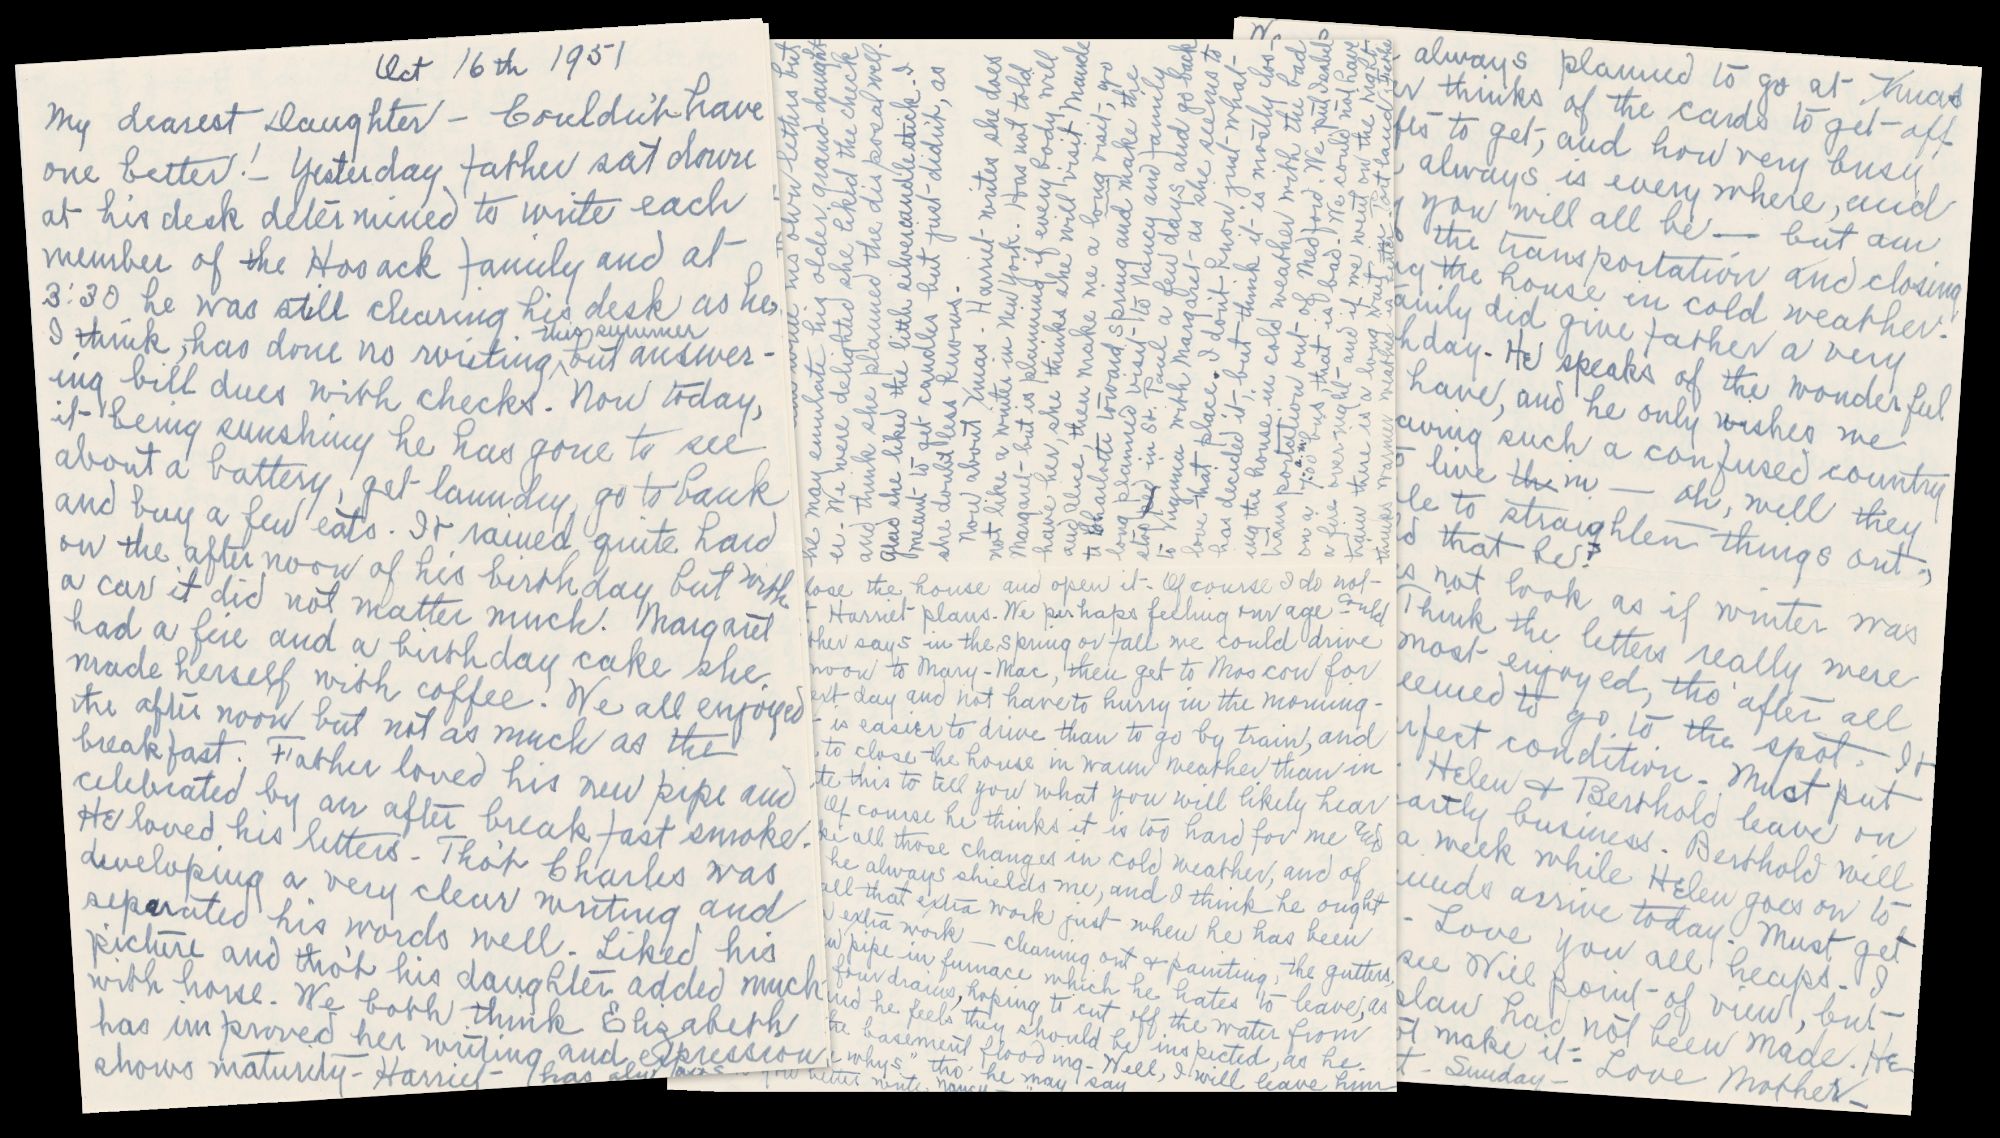 Oct 16th 1951
My dearest Daughter - Couldn't have
one better! - Yesterday father sat down
at his desk determined to write each
member of the Hosack family and at
3:30 he was still clearing his desk as he,
I think, has done no writing, this summer but answer-
ing bill dues with checks. Now today,
it being sunshiny he has gone to see
about a battery, get laundry, go to bank
and buy a few eats. It rained quite hard
on the afternoon of his birthday but with
a car it did not matter much. Margaret
had a fire and a birthday cake she
made herself with coffee. We all enjoyed
the afternoon but not as much as the
breakfast. Father loved his new pipe and
celebrated by an after breakfast smoke.
He loved his letters - Tho't Charles was
developing a very clear writing and
separated his words well. Liked his
picture and tho't his daughter added much
with horse. We both think Elizabeth
has improved her writing and expression
shows maturity - Harriet - has always
he may emulate his older grand-daught
er - We were delighted she liked the check
and think she planned the disposal well.
glad she liked the little silver candle stick - I
meant to get candles but just didn't, as
she doubtless knows.
Now about Xmas - Harriet writes she does
not like a winter in New York. Has not told
Margaret - but is planning if every body will
have her, she thinks she will visit Maude
and Alice, then make me a long visit, go
to Charlotte toward spring and make the
long planned visit - to Nancy and family
stop in St. Paul a few days and go back
to Virginia with Margaret - as she seems to
love that place. I don't know just what
has decided it - but think it is mostly clos-
ing the house in cold weather with the bad
transportation out of Medford. We put Isabel
on a 7:00 a.m. bus, that is bad - We could not have
a fire over night - and if we went on the night
train there is a long wait in Portland
lose the house and open it - Of course I do not -
Harriet plans. We perhaps feeling our age could
ther says in the spring or fall we could drive
noon to Mary-Mac, then get to Moscow for
ext day and not have to hurry in the morning -
- is easier to drive than to go by train, and
to close the house in warm weather than in
te this to tell you what you will likely hear
Of course he thinks it is too hard for me and
ke all those changes in cold weather, and of
he always shields me, and I think he ought
all that extra work just when he has been
extra work - cleaning out & painting, the gutters,
w pipe in furnace which he hates to leave, as
four drains, hoping to cut off the water from
nd he feels they should be inspected, as he
the basement flooding - Well, I will leave him
e whys" tho' he may say
always planned to go at Xmas
er thinks of the cards to get off
fts to get, and how very busy
always is every where, and
y you will all be - but am
the transportation and closing
ng the house in cold weather.
amily did give father a very
hday - He speaks of the wonderful
have, and he only wishes we
aving such a confused country
live in - Oh, well they
le to straighten things out,
d that be?
s not look as if winter was
Think the letters really were
most enjoyed, tho' after all
eemed to go to the spot. It
rfect condition. Must put
Helen & Berthold leave on
artly business. Berthold will
a week while Helen goes on to
iends arrive today. Must get
- Love you all heaps. I
see Will point of view, but
plan had not been made. He
ot make it - Love Mother -
t - Sunday -